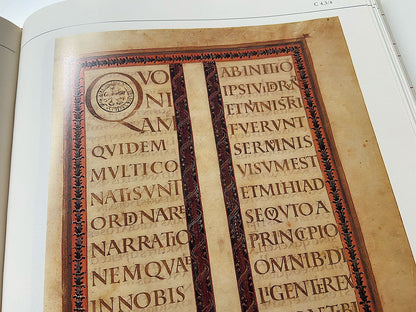 C 4.3/4
QVO
NI
AM
QUIDEM
MULTICO
NATISVNT
ORDNARE
NARRATIO
NEMQVAE
INNOBIS
ABINITIO
IPSIVIDRT
ETMNISTRI
FVERVNT
SERMNIS
VISVMEST
ETMIHIAD
SEQVTOA
PRINCIPIO
OMNIBDI
LIGENTEREX